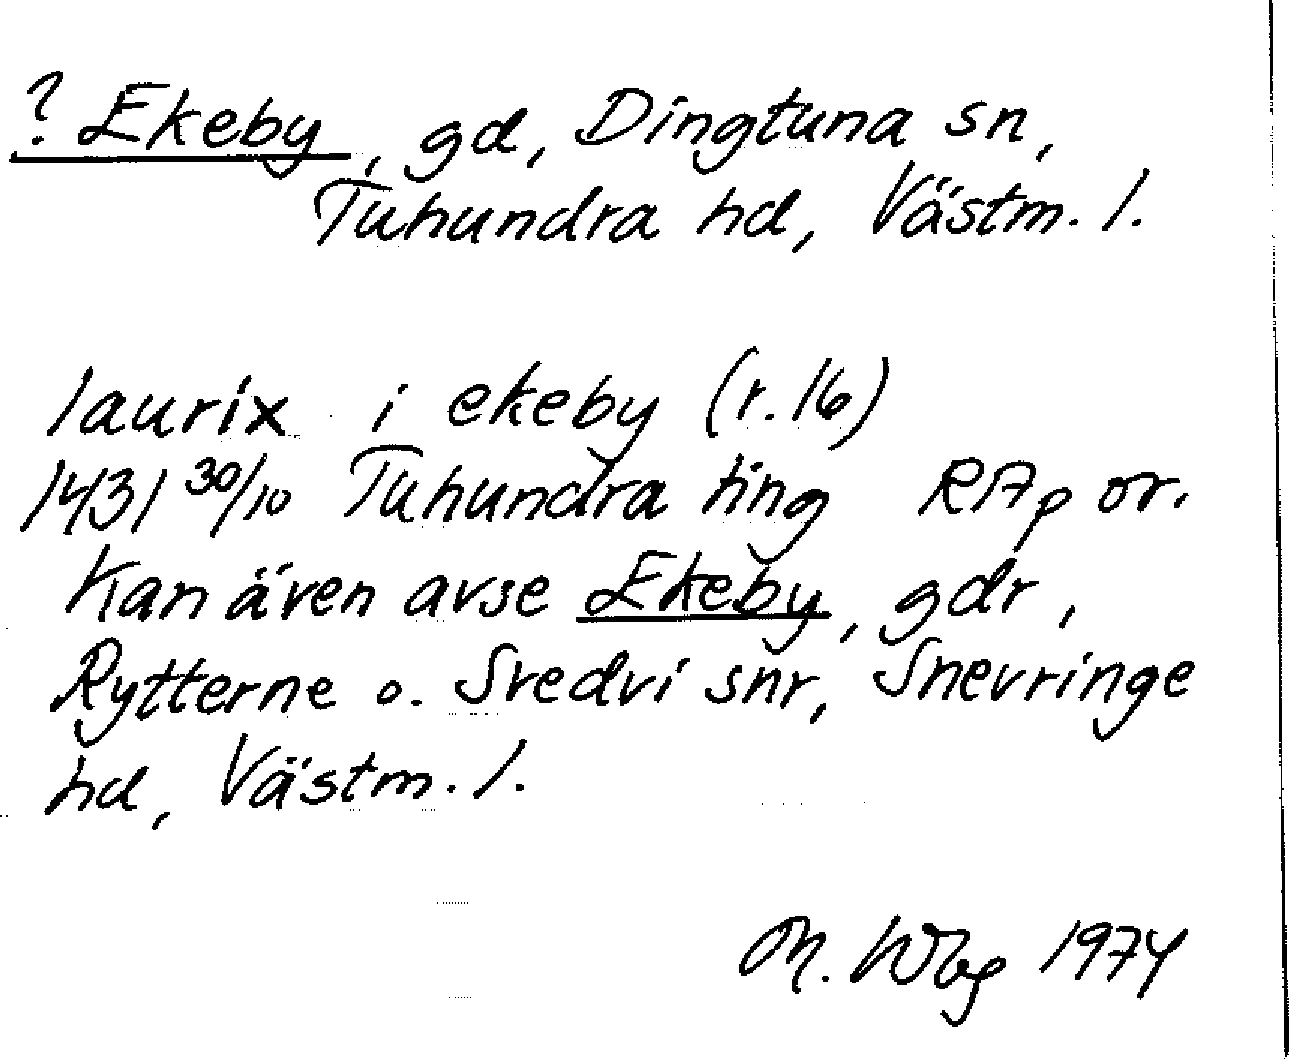 ? Ekeby, gd, Dingtuna sn,
Tuhundra hd, Västm. l.
laurix i ekeby (r. 16)
1431 30/10 Tuhundra ting RAp or.
Kan även avse Ekeby, gdr,
Rytterne o. Svedvi snr, Snevringe
hd, Västm. l.
M. Wbg 1974